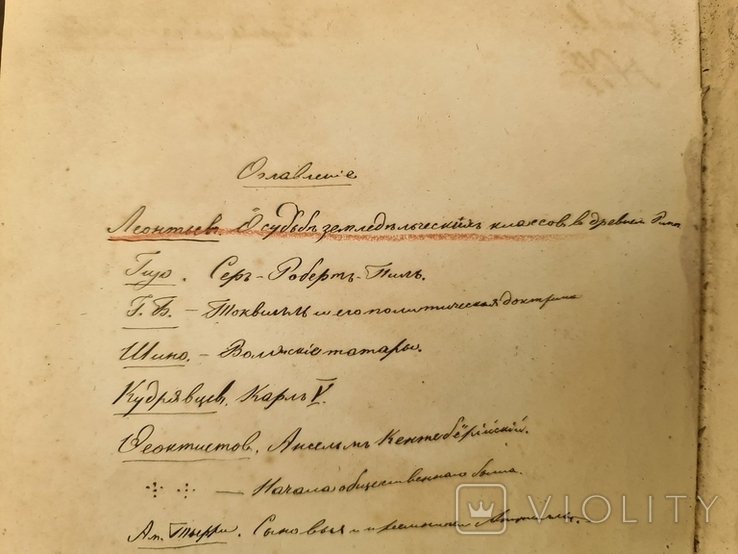 Оглавленіе
Леонтьев. О судьбѣ земледѣльческихъ классовъ в древнем Риме
Гизо. Серъ-Робертъ-Пиль.
Г. В. – Токвилль и его политическая доктрина
Шино. – Волжскіе татары.
Кудрявцев. Карлъ V.
Феоктистов. Ансельмъ Кентеберійскій.
– Начала общественнаго быта.
Ам. Тьерри. Сыновья и преемники Аттиллы.
VIOLITY